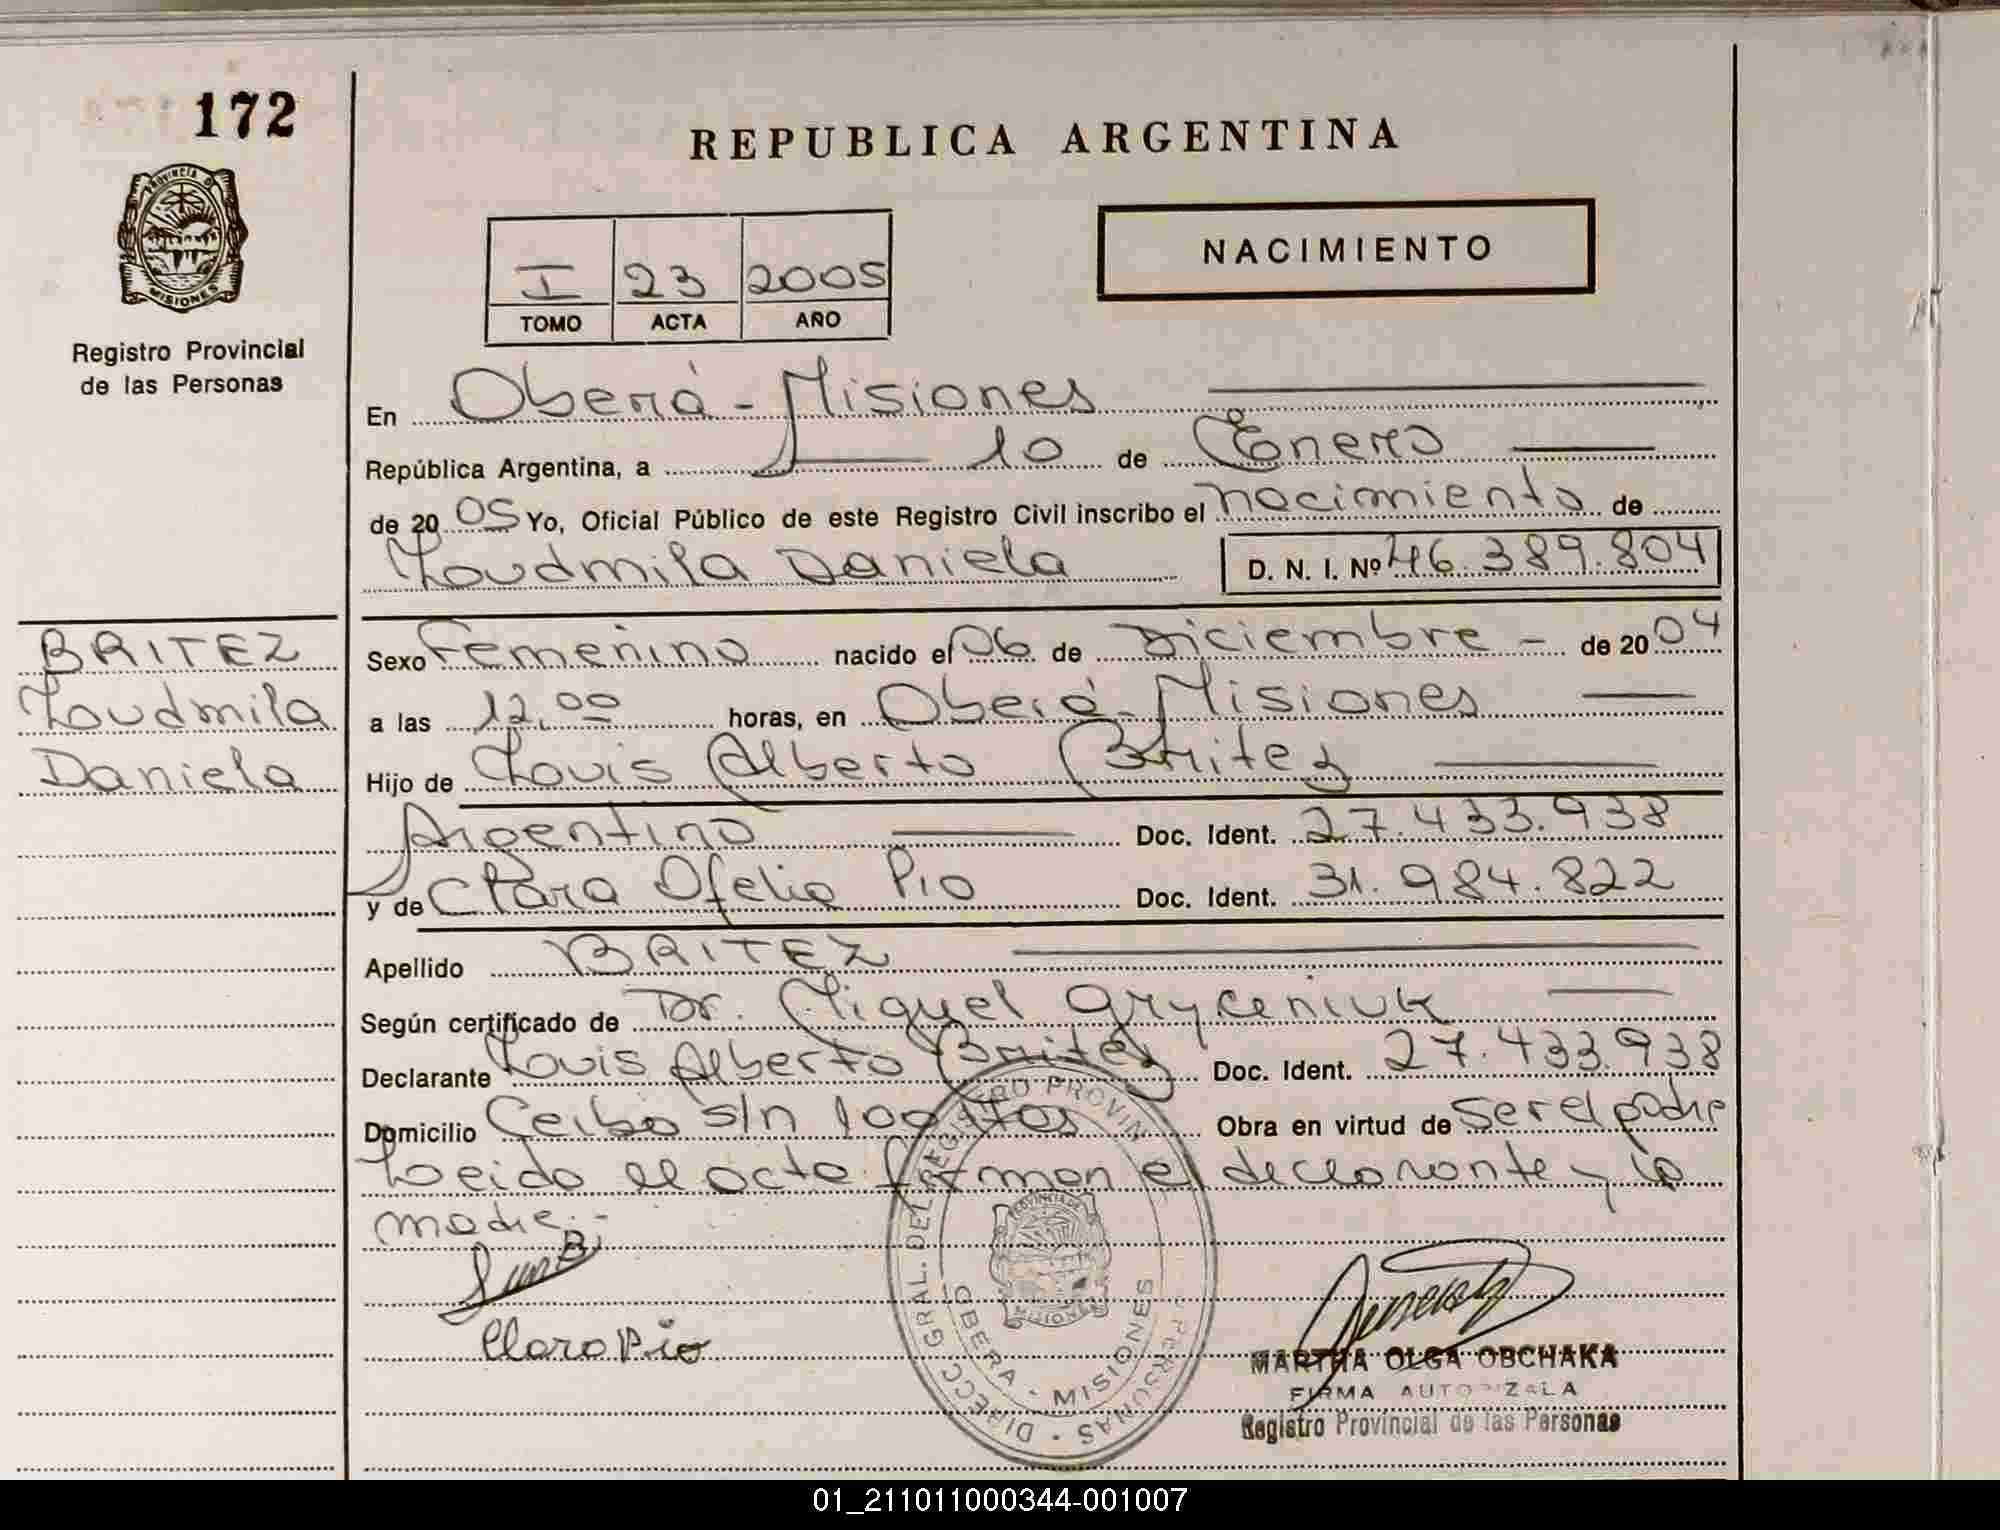 172
REPUBLICA ARGENTINA
PROVINCIA DE
MISIONES
NACIMIENTO
I 23 2005
TOMO ACTA AÑO
Registro Provincial
de las Personas
En Oberá - Misiones
República Argentina, a 10 de Enero
de 2005 Yo, Oficial Público de este Registro Civil inscribo el nacimiento de
Loudmila Daniela D. N. I. Nº 46.389.804
BRITEZ
Loudmila
Daniela
Sexo Femenino nacido el 06 de Diciembre - de 2004
a las 12,00 horas, en Oberá - Misiones
Hijo de Louis Alberto Britez
Argentino Doc. Ident. 27.433.938
y de Clara Ofelia Pio Doc. Ident. 31.984.822
Apellido BRITEZ
Según certificado de Dr. Miguel Gryceniuk
Declarante Louis Alberto Britez Doc. Ident. 27.433.938
Domicilio Ceibo s/n 100 Obra en virtud de ser el padre
Leida el acta firman el declarante y la
madre.-
Clara Pio
DIRECC GRAL. DEL REGISTRO PROVIN PERSONAS
OBERA - MISIONES
MARTHA OLGA OBCHAKA
FIRMA AUTORIZADA
Registro Provincial de las Personas
01_211011000344-001007